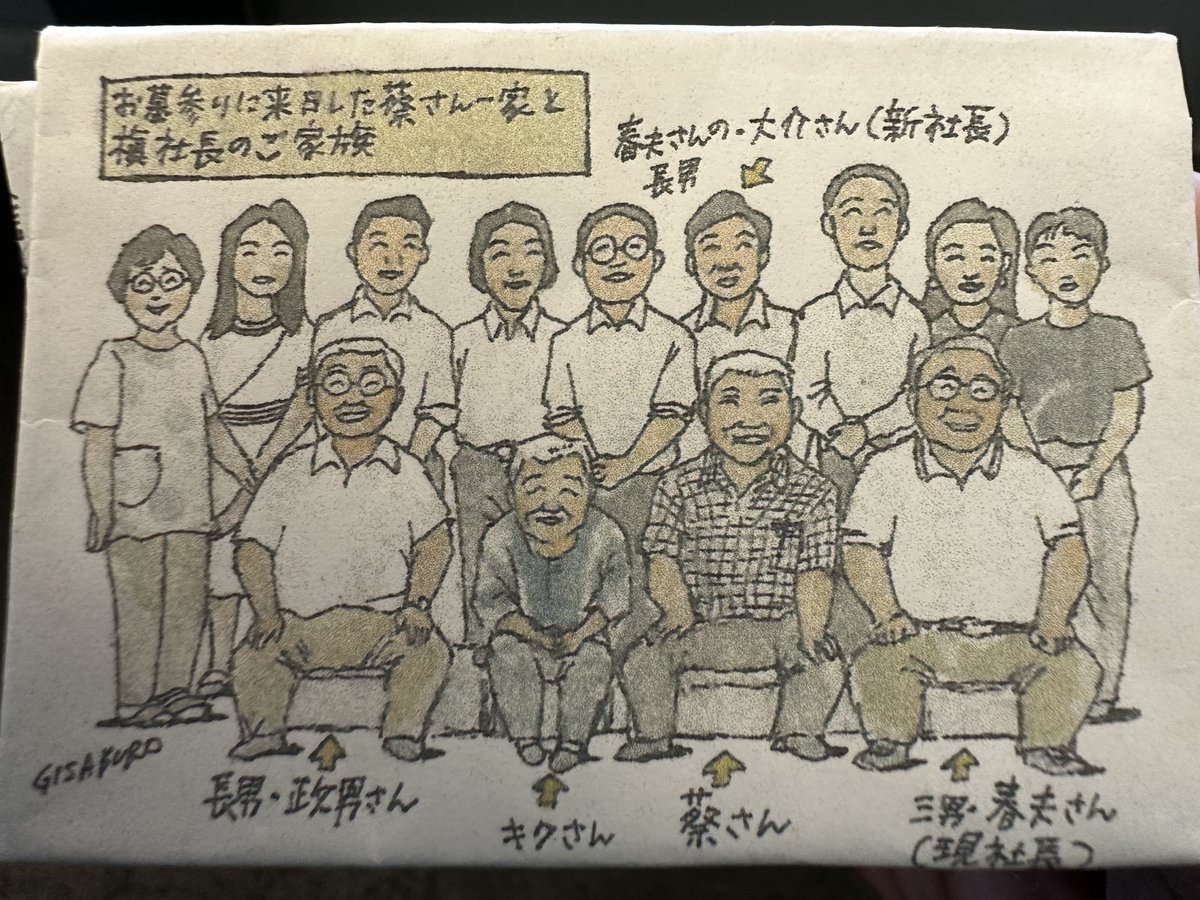 お墓参りに来日した蔡さん一家と
槇社長のご家族
春夫さんの・大介さん(新社長)
長男
GISABURO
長男・政男さん
キクさん
蔡さん
三男・春夫さん
(現社長)